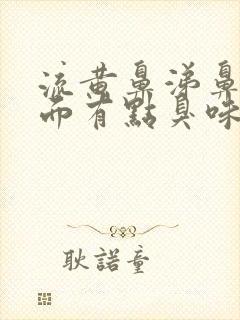 流黄鼻涕鼻
而有點臭味
耿諾童